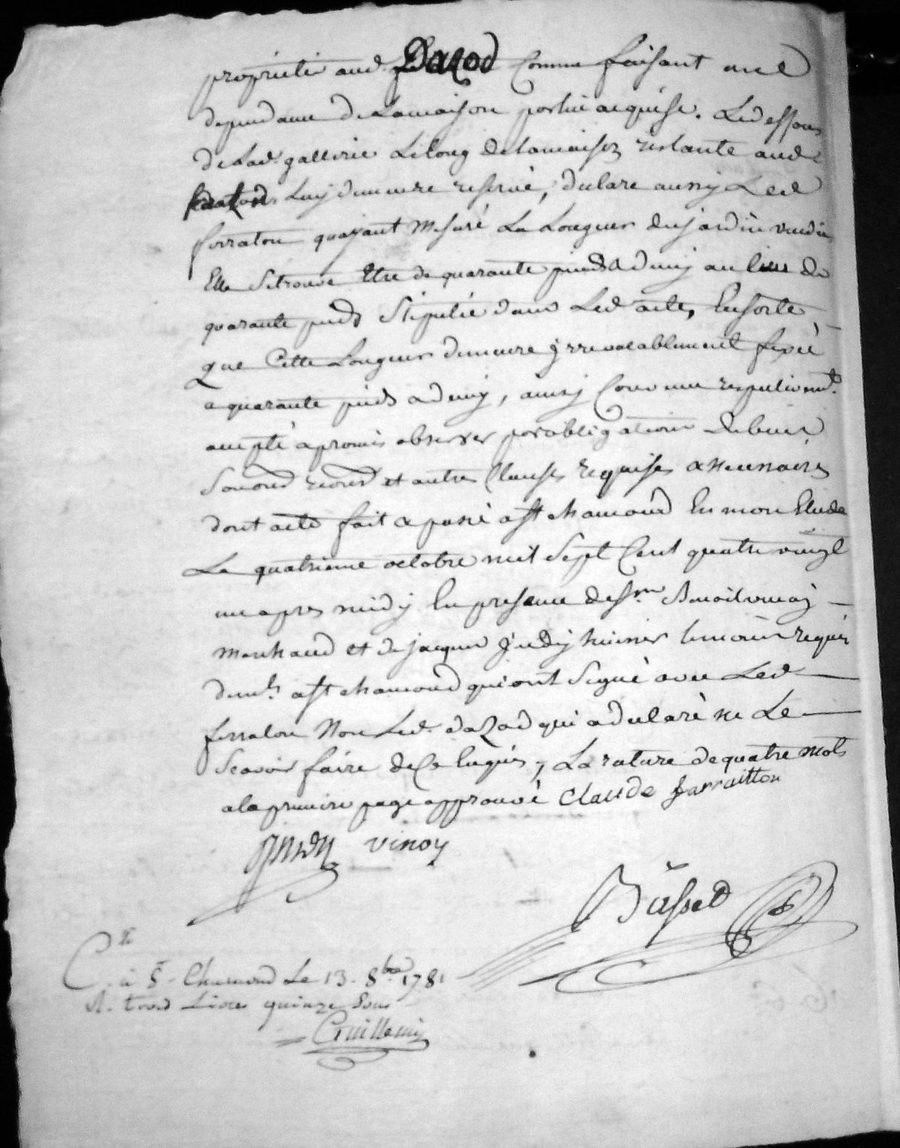 proprieté aud. Dazod Comme faisant une
dependance de la maison par luy acquise. Le dessous
de lad. gallerie Le long de la maison restante aud.
Luy demeure reservé, declare aussy Led.
ferraton qu'ayant Mesuré La Longueur du jardin vendu
Elle se trouve Etre de quarante pieds & demy au lieu de
quarante pieds Stipulée dans Led. acte, Ensorte
que Cette Longueur demeure jrrevocablement fixée
a quarante pieds a demy, ainsy Convenu respectivemt.
accepté a promis observer par obligation De biens
Soum. renon. et autres Clauses requises & necessaires
dont acte fait a passé a St chamond En mon Etude
Le quatrieme octobre mil Sept Cent quatre vingt
un apres midy En presence de Sr. Benoit vinoy
marchand et de jacques temoins requis
demts. a St chamond qui ont Signé avec Led.
ferraton Non Led. dazod qui a declaré ne Le
Scavoir faire de Ce Enquis, La rature de quatre mots
a la premiere page approuvé Claude farraitton
vinoy
Basset
C. à St. Chamond Le 13. 8bre 1781
R. trois Livres quinze Sous
Guillemin